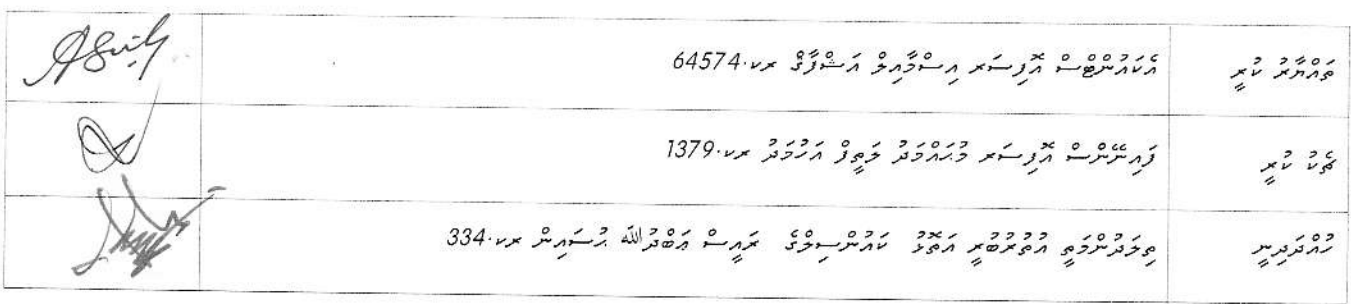 ތައްޔާރު ކުރީ އެކައުންޓްސް އޮފިސަރ އިސްމާއިލް އަޝްފާޤް ރކ.64574
ޗެކު ކުރީ ފައިނޭންސް އޮފިސަރ މުޙައްމަދު ލަތީފް އަހުމަދު ރކ.1379
ހުއްދަދިނީ ތިލަދުންމަތީ އުތުރުބުރީ އަތޮޅު ކައުންސިލްގެ ރައީސް ޢަބްދުﷲ ޙުސައިން ރކ.334